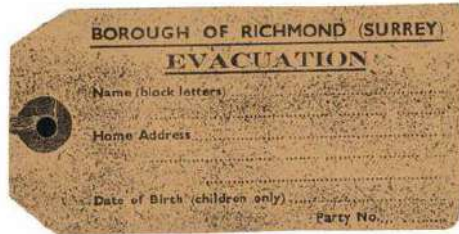 BOROUGH OF RICHMOND (SURREY)
EVACUATION
Name (block letters)
Home Address
Date of Birth (children only)
Party No.